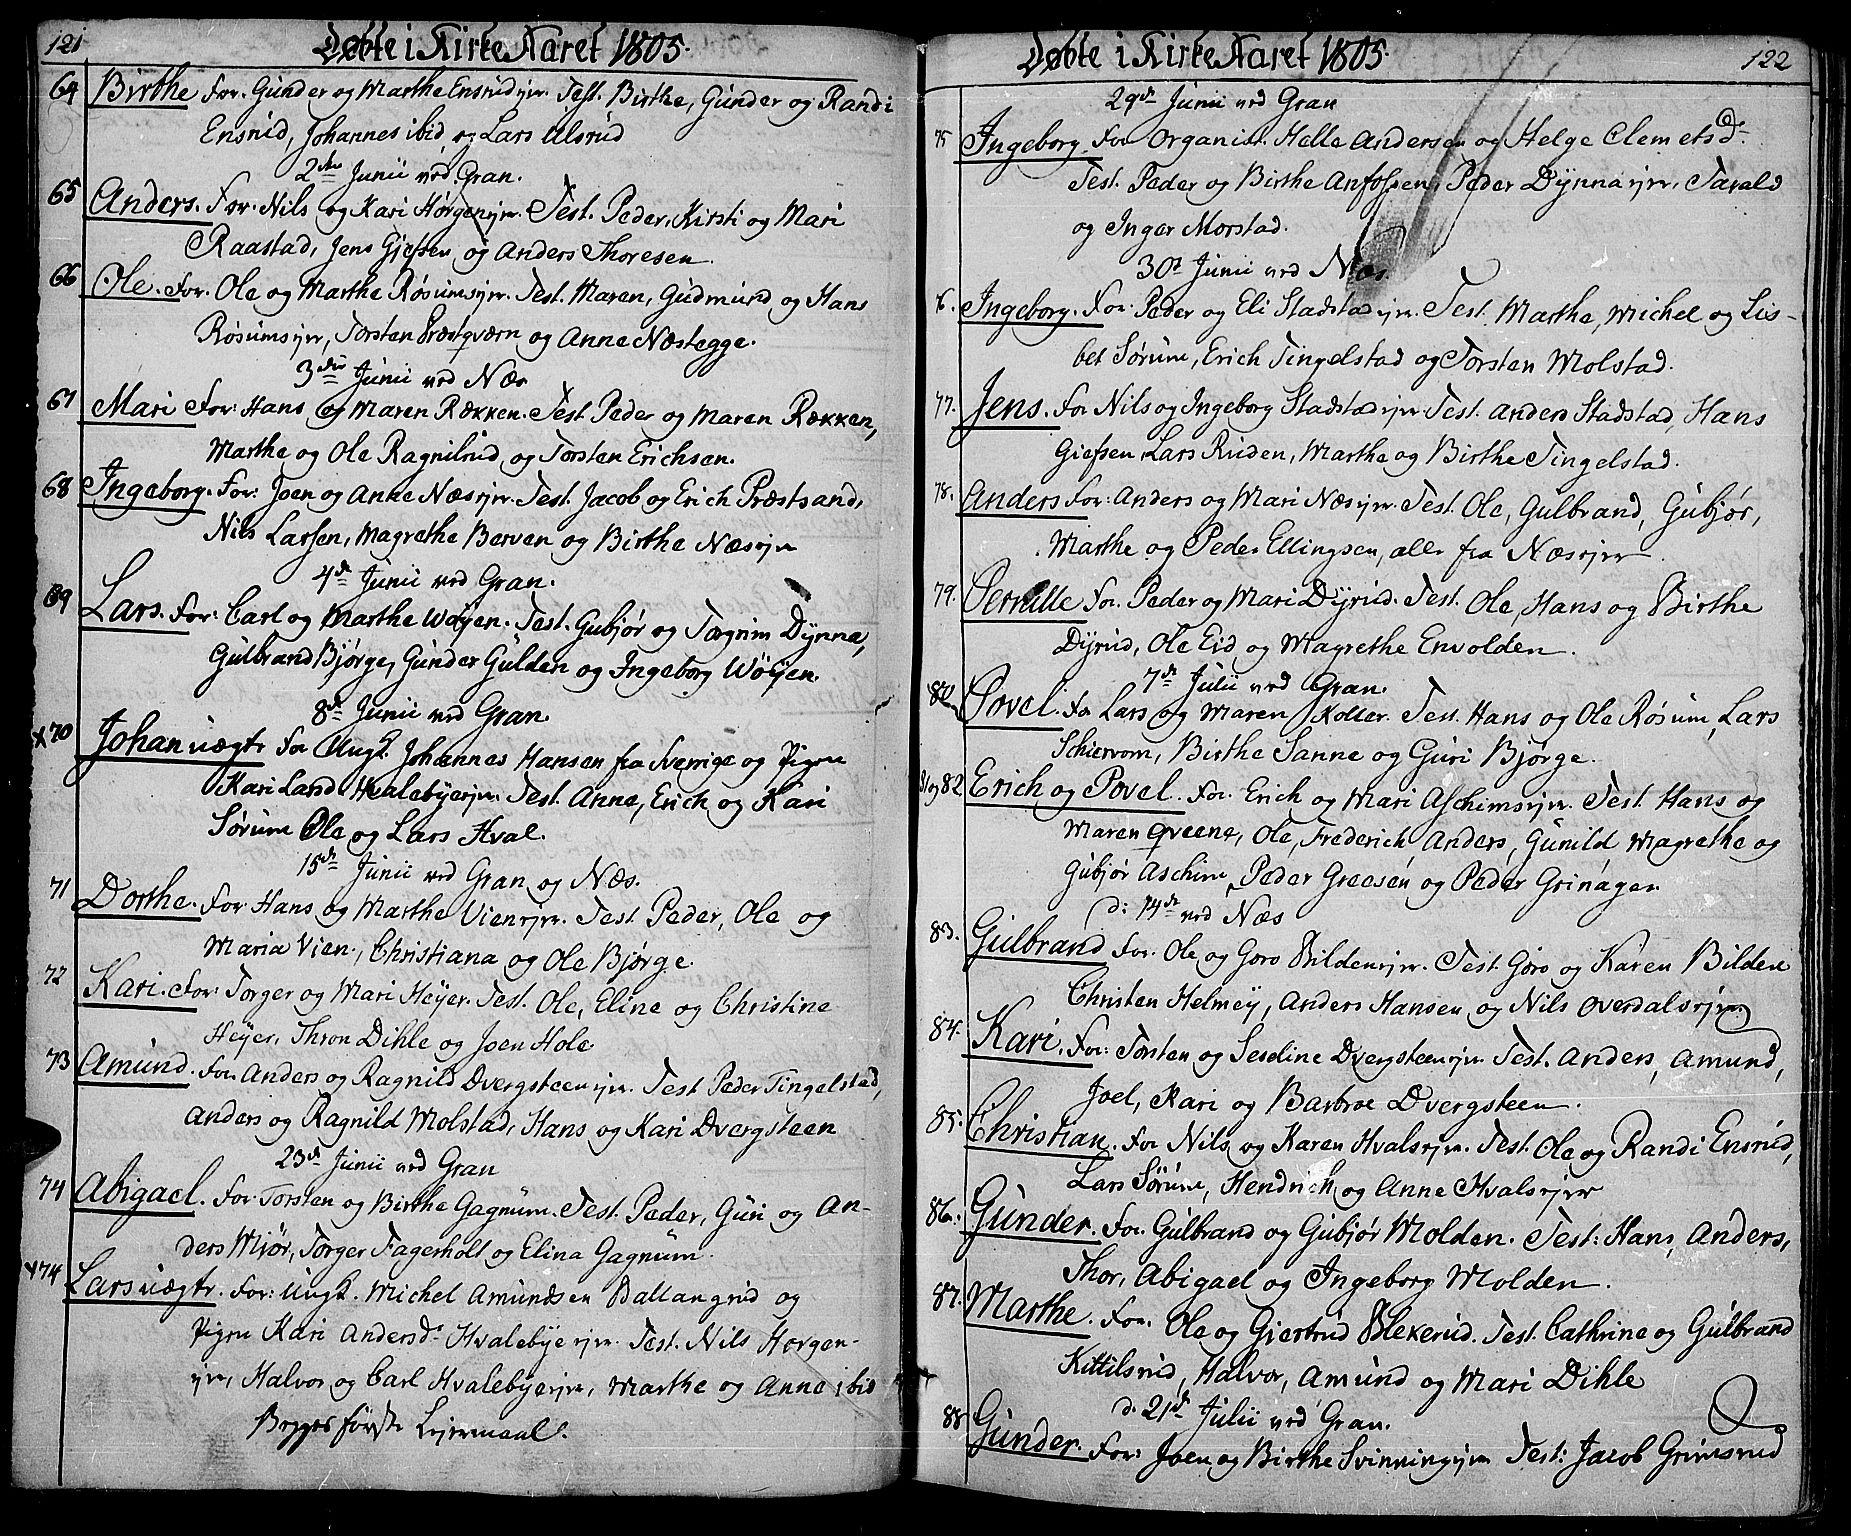 121
Døbte i Kirke Aaret 1805.
64 Birthe For. Gunder og Marthe Ensrudejer. Test. Birthe, Gunder og Randi
Ensrud, Johannes ibid, og Lars Ulsrud
2den Junii ved Gran.
65 Anders. For: Nils og Kari Horgenejer. Test. Peder, Kirsti og Mari
Raastad, Jens Giefsen og Anders Thoresen.
66 Ole. For. Ole og Marthe Røsumsejer. Test. Maren, Gudmund og Hans
Røsumsejer, Torsten Præstqværn og Anne Næstegge.
3die Junii ved Næs
67 Mari For: Hans og Maren Rækken. Test. Peder og Maren Rækken,
Marthe og Ole Ragnilrud, og Torsten Erichsen.
68 Ingeborg. For: Joen og Anne Næsejer. Test. Jacob og Erich Præstsand,
Nils Larsen, Magrethe Berven og Birthe Næsejer
4de Junii ved Gran.
69 Lars. For: Carl og Marthe Wøyen. Test. Gubjør og Tægrim Dynna,
Gulbrand Bjørge, Gunder Gulden og Ingeborg Wøÿen.
8de Junii ved Gran.
x70 Johan uægte For Ungk. Johannes Hansen fra Sverrige og Pigen
Kari Land Hvalebyeejer. Test. Anne, Erich og Kari
Sørum Ole og Lars Hval.
15de Junii ved Gran og Næs.
71 Dorthe. For: Hans og Marthe Vienejer. Test. Peder, Ole og
Maria Vien, Christiana og Ole Bjørge.
72 Kari. For: Torger og Mari Heÿer. Test. Ole, Eline og Christine
Heÿer, Thron Dihle og Joen Hole.
73 Amund. For. Anders og Ragnild Dvergsteenejer. Test Peder Tingelstad,
Anders og Ragnild Molstad, Hans og Kari Dvergsteen
23de Junii ved Gran
74 Abigael. For: Torsten og Birthe Gagnum. Test. Peder, Guri og An-
ders Mjør, Torger Fagerholt og Elina Gagnum.
x74 Lars uægte. For: Ungk. Michel Amundsen Ballangrud og
Pigen Kari Andersdr Hvalebyeejer. Test. Nils Horgen-
ejer, Halvor og Carl Hvalebyeejer, Marthe og Anne ibid
Begges første Lejermaal.
Døbte i Kirke Aaret 1805.
122
29de Junii ved Gran
75 Ingeborg. For Organist Helle Andersen og Helge Clemetsdr.
Test. Peder og Birthe Anfossen, Peder Dynnaejer, Tarald
og Inger Morstad.
30te Junii ved Næs
76. Ingeborg. For. Peder og Eli Stadstadejer. Test. Marthe, Michel og Lis-
bet Sørum, Erich Tingelstad og Torsten Molstad.
77. Jens. For Nils og Ingeborg Stadstadejer. Test. Anders Stadstad, Hans
Giefsen, Lars Ruden, Marthe og Birthe Tingelstad.
78. Anders For: Anders og Mari Næsejer. Test. Ole, Gulbrand, Gubjør,
Marthe og Peder Ellingsen, alle fra Næsejer.
79. Pernille For. Peder og Mari Dyrud. Test. Ole, Hans og Birthe
Dyrud, Ole Eid og Magrethe Envolden.
7de Julii ved Gran.
80 Povel. For Lars og Maren Koller. Test. Hans og Ole Røsum, Lars
Schiervom, Birthe Sanne og Guri Bjørge.
81 og 82 Erich og Povel. For. Erich og Mari Aschimsejer. Test. Hans og
Maren Qveene, Ole, Frederich Anders, Gunild Magrethe og
Gubjør Aschim, Peder Greesen og Peder Grinager
d: 14de ved Næs
83. Gulbrand For. Ole og Goro Bildenejer. Test. Goro og Karen Bilden
Christen Helmeÿ, Anders Hansen og Nils Overdalsejer.
84. Kari. For: Torsten og Sesseline Dvergsteenejer Test. Anders, Amund,
Joel, Kari og Barbroe Dvergsteen.
85. Christian. For Nils og Karen Hvalsejer. Test. Ole og Randi Ensrud,
Lars Sørum, Hendrich og Anne Hvalsejer
86. Gunder. For. Gulbrand og Gubjør Molden. Test: Hans, Anders,
Thor, Abigael og Ingeborg Molden.
87. Marthe. For. Ole og Giertrud Blekerud. Test. Cathrine og Gulbrand
Kittilsrud, Halvor, Amund og Mari Dihle
d. 21de Julii ved Gran.
88 Gunder. For: Joen og Birthe Svinningejer Test: Jacob Grimsrud